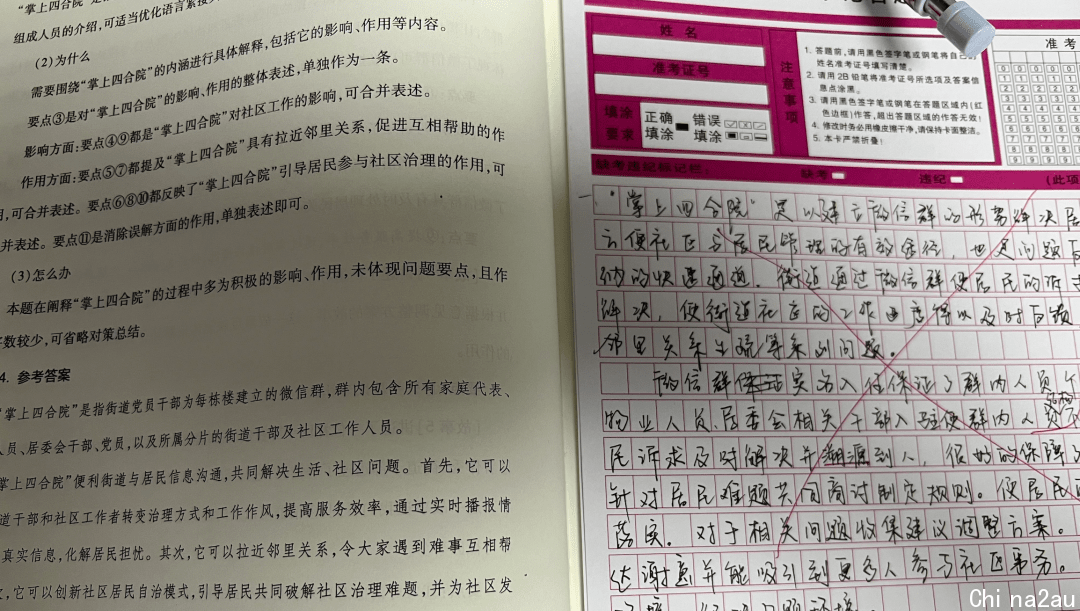 "掌上四合院"是
组成人员的介绍,可适当优化语言紧接
(2)为什么
需要围绕"掌上四合院"的内涵进行具体解释,包括它的影响、作用等内容。
要点③是对"掌上四合院"的影响、作用的整体表述,单独作为一条。
影响方面:要点④⑨都是"掌上四合院"对社区工作的影响,可合并表述。
作用方面:要点⑤⑦都提及"掌上四合院"具有拉近邻里关系,促进互相帮助的作
用,可合并表述。要点⑥⑧⑩都反映了"掌上四合院"引导居民参与社区治理的作用,可
并表述。要点⑪是消除误解方面的作用,单独表述即可。
(3)怎么办
本题在阐释"掌上四合院"的过程中多为积极的影响、作用,未体现问题要点,且作
数较少,可省略对策总结。
4. 参考答案
掌上四合院"是指街道党员干部为每栋楼建立的微信群,群内包含所有家庭代表、
人员、居委会干部、党员,以及所属分片的街道干部及社区工作人员。
掌上四合院"便利街道与居民信息沟通,共同解决生活、社区问题。首先,它可以
道干部和社区工作者转变治理方式和工作作风,提高服务效率,通过实时播报情
真实信息,化解居民担忧。其次,它可以拉近邻里关系,令大家遇到难事互相帮
,它可以创新社区居民自治模式,引导居民共同破解社区治理难题,并为社区发
姓名
准考证号
填涂要求
正确填涂
错误填涂
注意事项
1. 答题前,请用黑色签字笔或钢笔将自己的
姓名准考证号填写清楚。
2. 请用2B铅笔将准考证号所选项及答案信
息点涂黑。
3. 请用黑色签字笔或钢笔在答题区域内(红
色边框)作答,超出答题区域的作答无效!
4. 修改时务必用橡皮擦干净,请保持卡面整洁。
5. 本卡严禁折叠!
准考
缺考违纪标记栏:
缺考
违纪
(此项
一、"掌上四合院"是以建立微信群的形势解决居
方便社区与居民管理的有效途径,也是问题
纳的快速通道。街道通过微信群使居民的诉
解决,使街道社区的工作进度得以及时反馈
邻里关系生疏等系列问题。
微信群实名入住保证了群内人员
物业人员、居委会相关干部入驻使群内人员
民诉求及时解决并溯源到人,很好的保障
针对居民难题共同商讨制定规则。使居民
落实。对于相关问题收集建议调整方案。
达谢意并能吸引到更多人参与社区事务。
Chi na2au